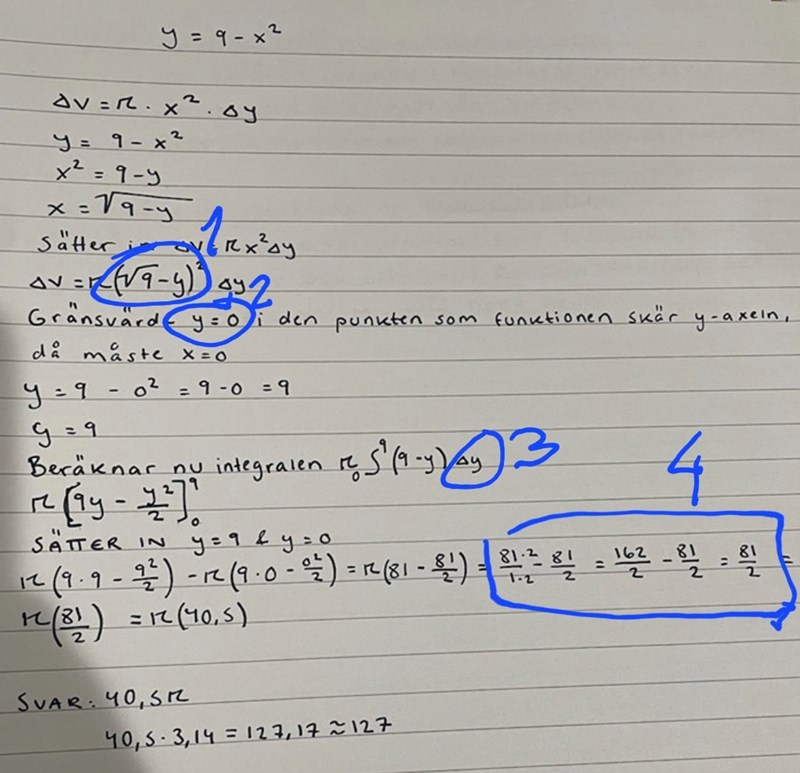 y = 9 - x²
ΔV = π · x² · Δy
y = 9 - x²
x² = 9 - y
x = √9-y
1
Sätter in ΔV = π x² Δy
ΔV = π(√9-y)² Δy
2
Gränsvärde y = 0 i den punkten som funktionen skär y-axeln,
då måste x = 0
y = 9 - 0² = 9 - 0 = 9
y = 9
Beräknar nu integralen π ₀∫⁹ (9-y) Δy
3
π [9y - y²/2]⁹₀
4
SÄTTER IN y = 9 & y = 0
π (9·9 - 9²/2) - π (9·0 - 0²/2) = π (81 - 81/2) = 81·2/1·2 - 81/2 = 162/2 - 81/2 = 81/2 =
π (81/2) = π (40,5)
SVAR: 40,5π
40,5 · 3,14 = 127,17 ≈ 127